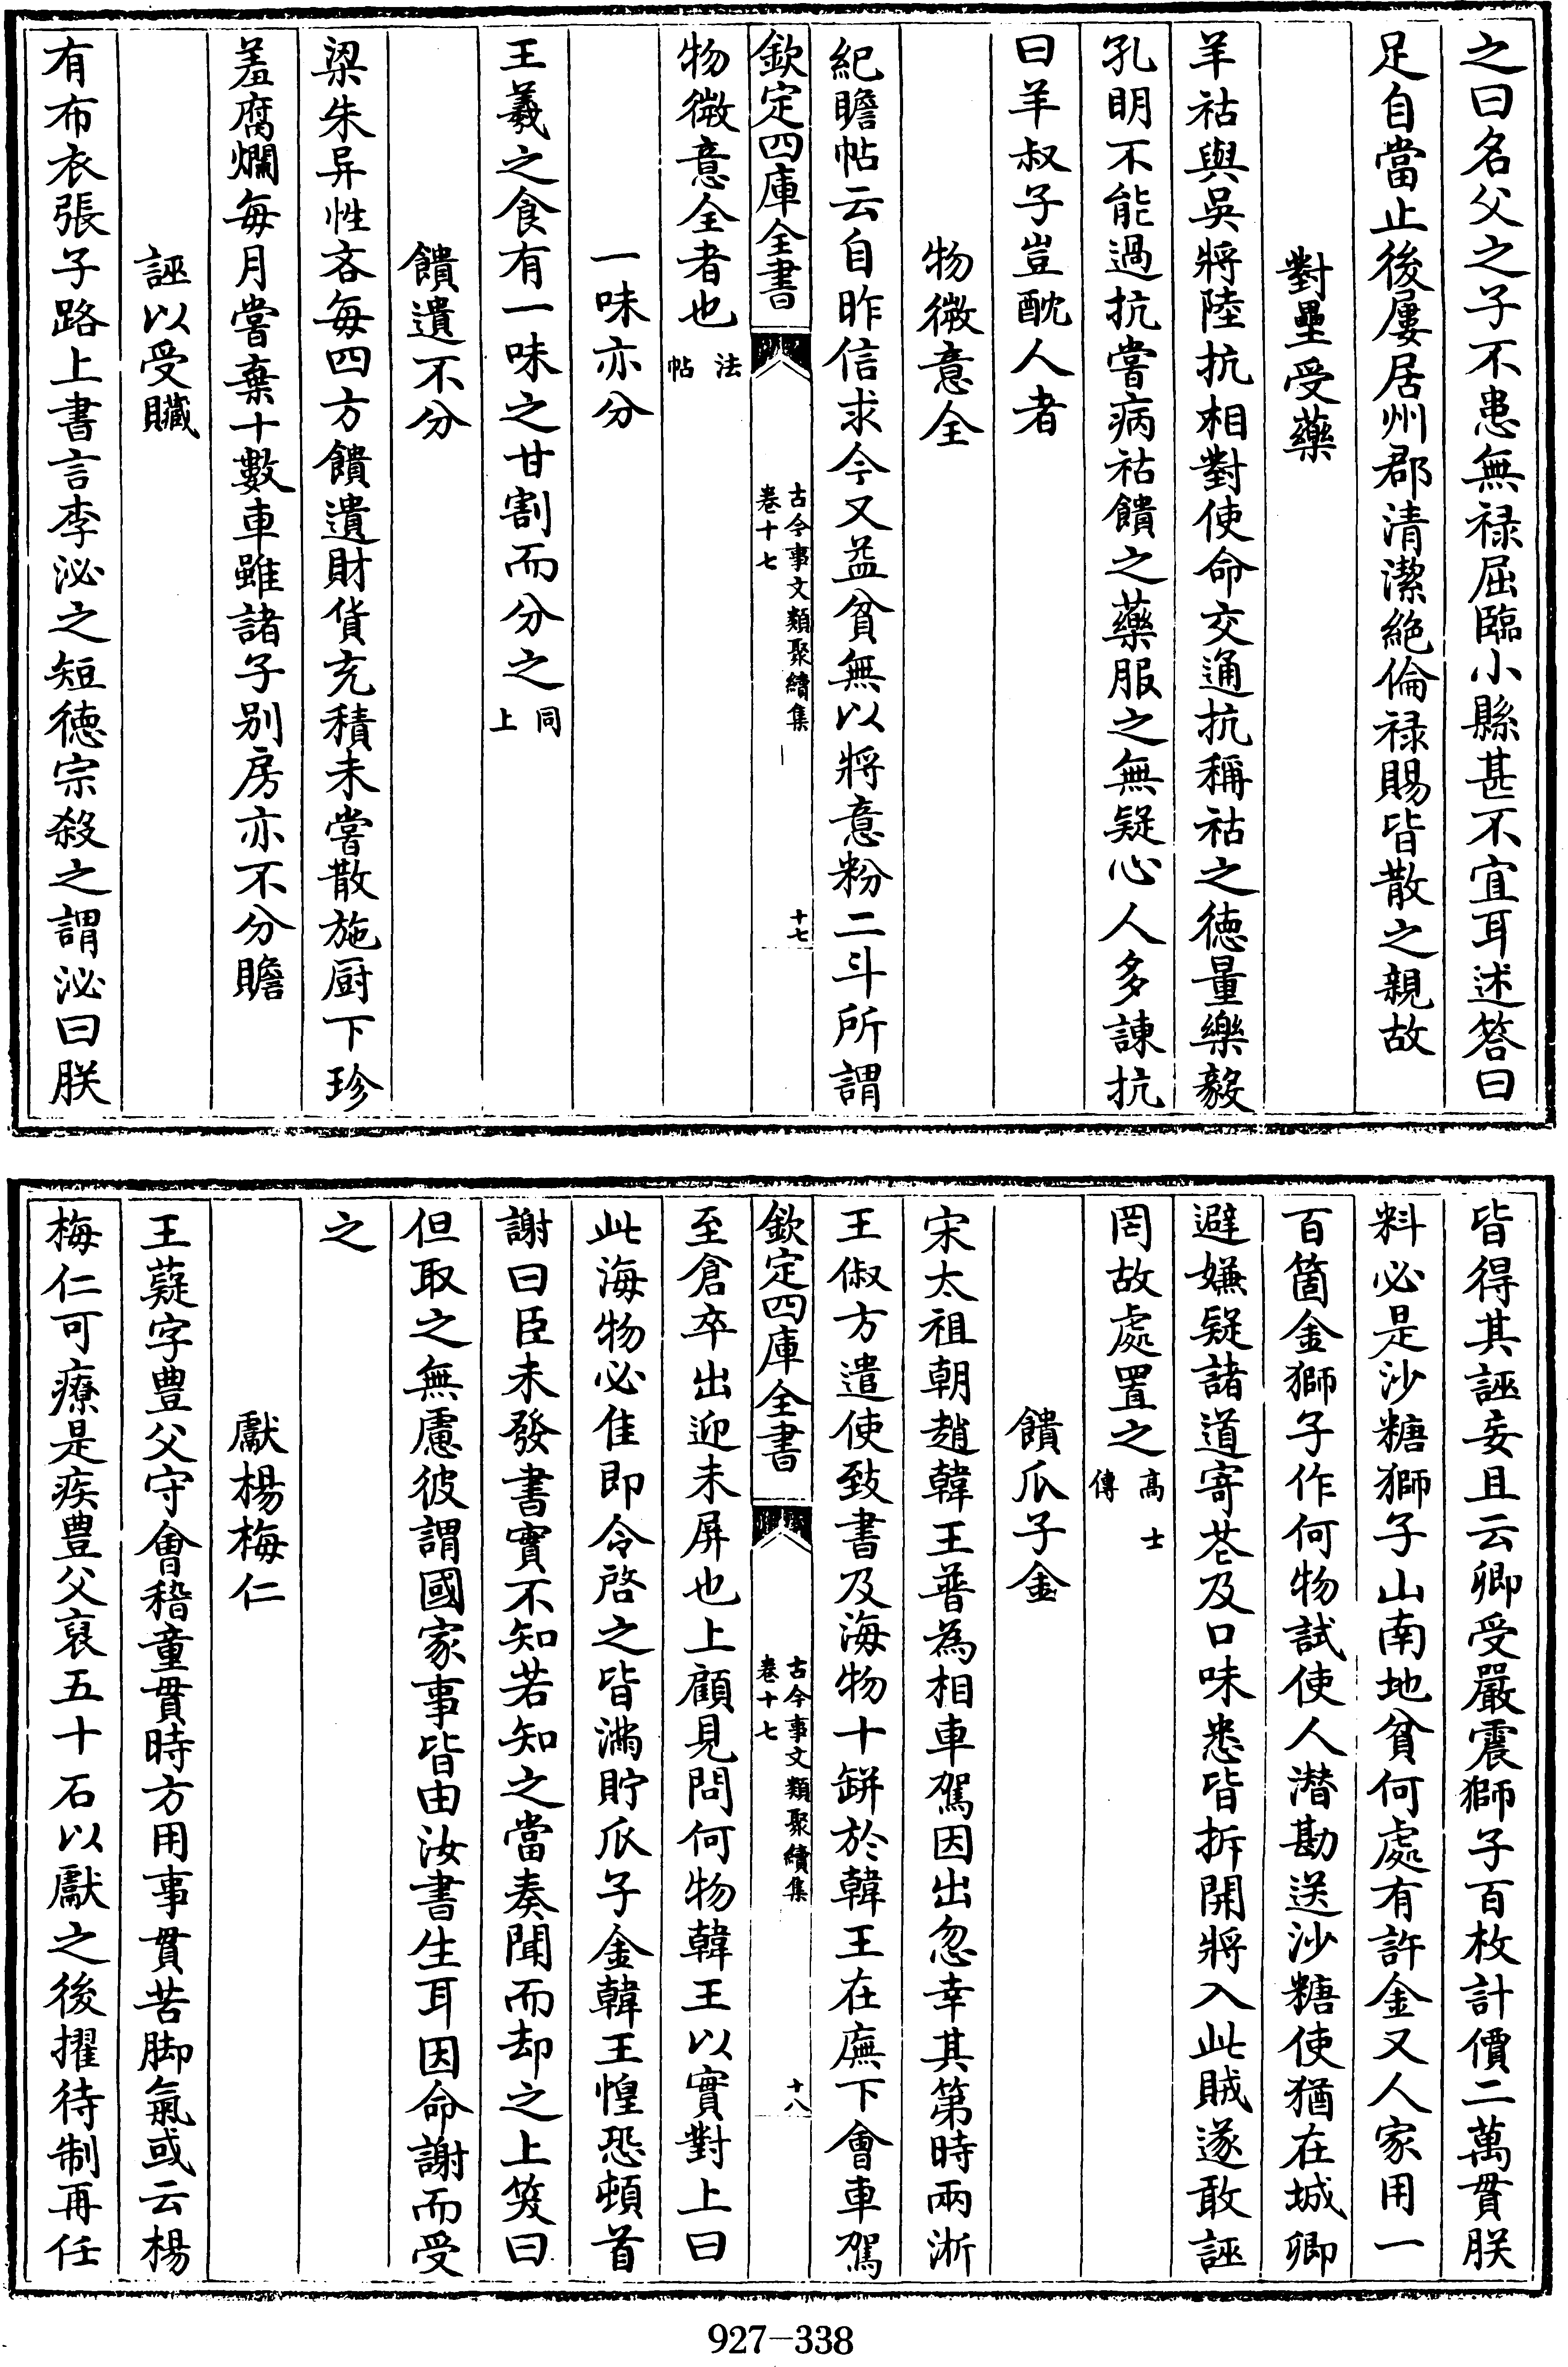 之曰名父之子不患無禄屈臨小縣甚不宜耳述答曰
足自當止後屢居州郡清潔絶倫禄賜皆散之親故
對壘受藥
羊祜與吳將陸抗相對使命交通抗稱祜之徳量樂毅
孔明不能過抗嘗病祜饋之藥服之無疑心人多諫抗
曰羊叔子豈酖人者
物微意全
紀瞻帖云自昨信求今又益貧無以將意粉二斗所謂
欽定四庫全書
古今事文類聚續集
卷十七
十七
物微意全者也法帖
一味亦分
王羲之食有一味之甘割而分之同上
饋遺不分
梁朱异性吝每四方饋遺財貨充積未嘗散施厨下珍
羞腐爛每月嘗棄十數車雖諸子别房亦不分贍
誣以受贓
有布衣張子路上書言李泌之短徳宗殺之謂泌曰朕
皆得其誣妄且云卿受嚴震獅子百枚計價二萬貫朕
料必是沙糖獅子山南地貧何處有許金又人家用一
百箇金獅子作何物試使人潛勘送沙糖使猶在城卿
避嫌疑諸道寄茖及口味悉皆拆開將入此賊遂敢誣
罔故處置之高士傳
饋瓜子金
宋太祖朝趙韓王普為相車駕因出忽幸其第時兩浙
王俶方遣使致書及海物十缾於韓王在廡下會車駕
欽定四庫全書
古今事文類聚續集
卷十七
十八
至倉卒出迎未屏也上顧見問何物韓王以實對上曰
此海物必佳即令啓之皆滿貯瓜子金韓王惶恐頓首
謝曰臣未發書實不知若知之當奏聞而却之上笑曰
但取之無慮彼謂國家事皆由汝書生耳因命謝而受
之
獻楊梅仁
王薿字豊父守會稽童貫時方用事貫苦脚氣或云楊
梅仁可療是疾豊父裒五十石以獻之後擢待制再任
927-338